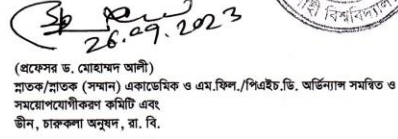 হী বিশ্ববিদ্যাল
26.09.2023
(প্রফেসর ড. মোহাম্মদ আলী)
স্নাতক/স্নাতক (সম্মান) একাডেমিক ও এম.ফিল./পিএইচ.ডি. অর্ডিন্যান্স সমন্বিত ও
সময়োপযোগীকরণ কমিটি এবং
ডীন, চারুকলা অনুষদ, রা. বি.